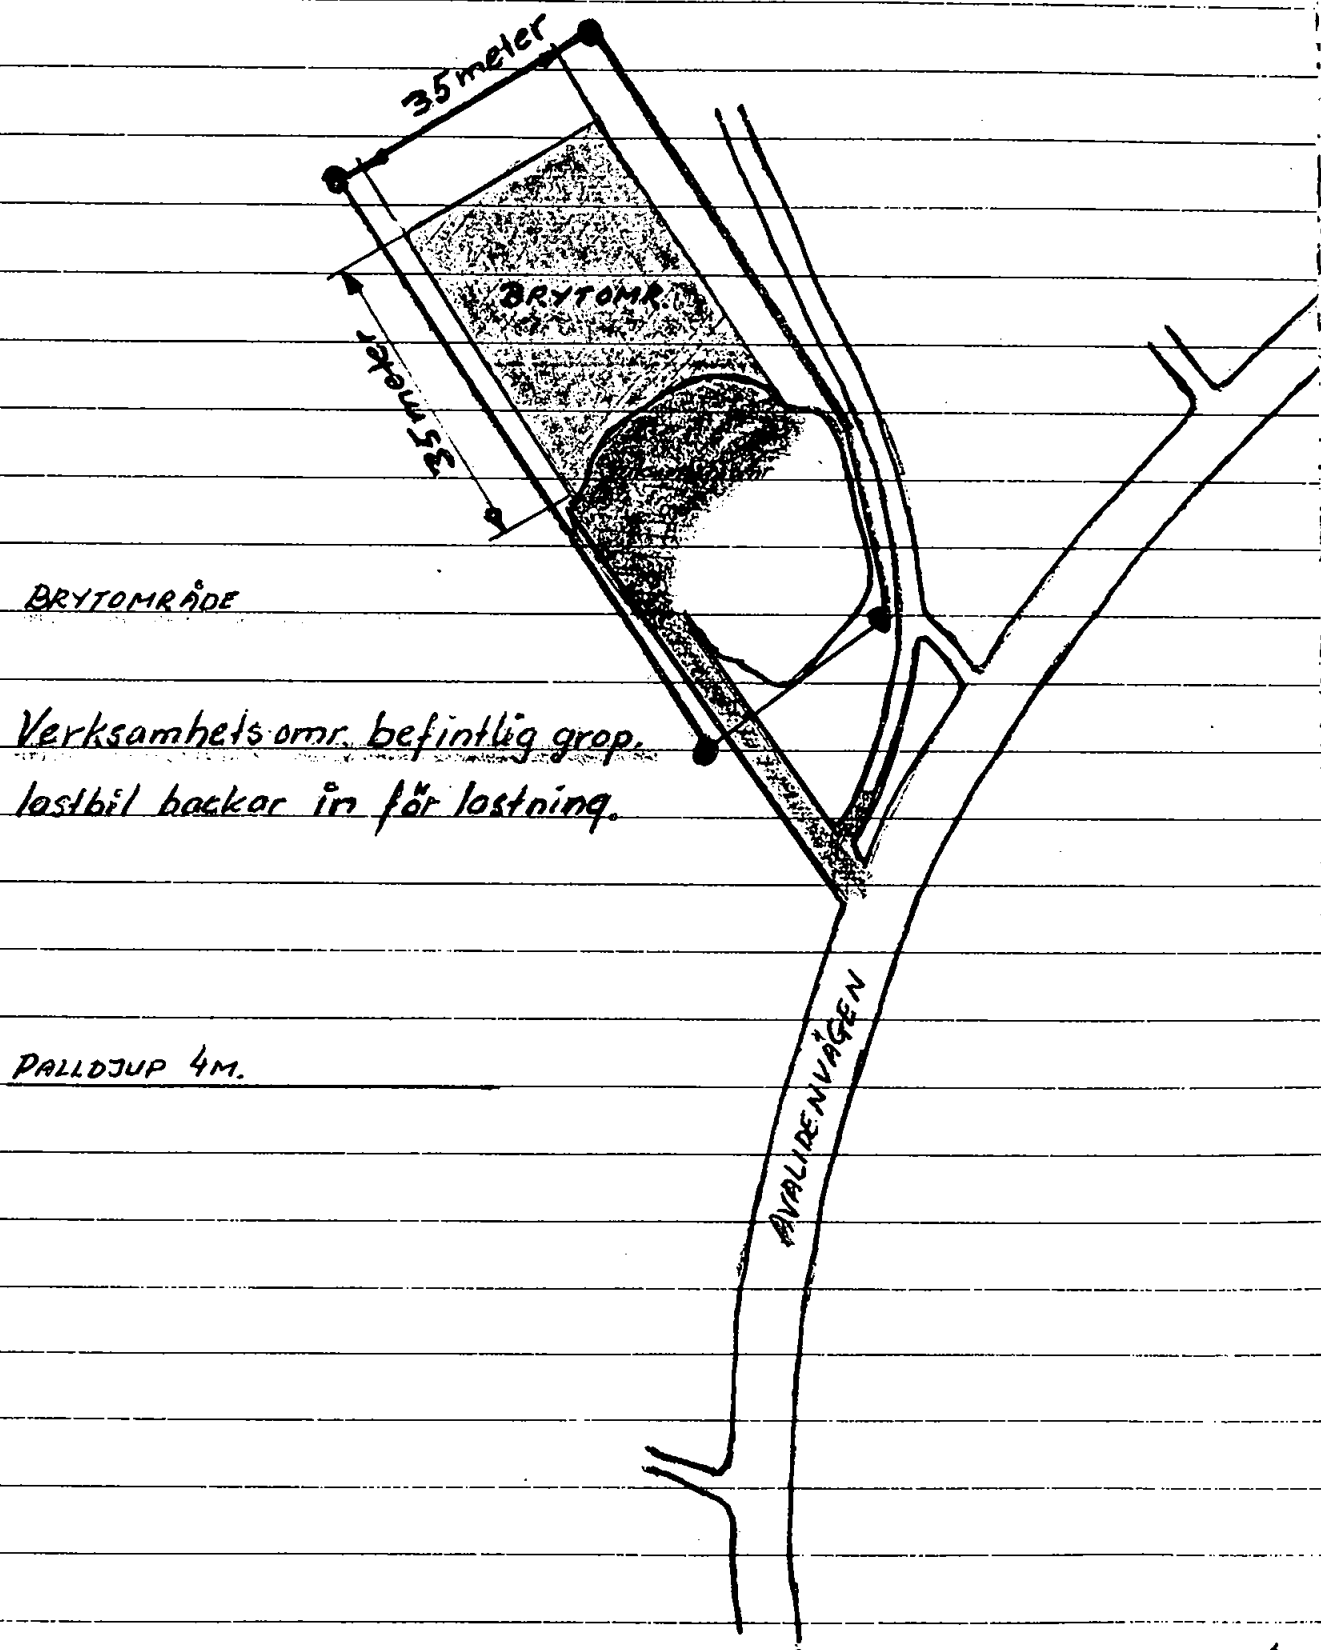 35 meter
BRYTOMR.
35 meter
BRYTOMRÅDE
Verksamhetsomr. befintlig grop.
lastbil backar in för lastning.
AVALIDENVÄGEN
PALLDJUP 4M.